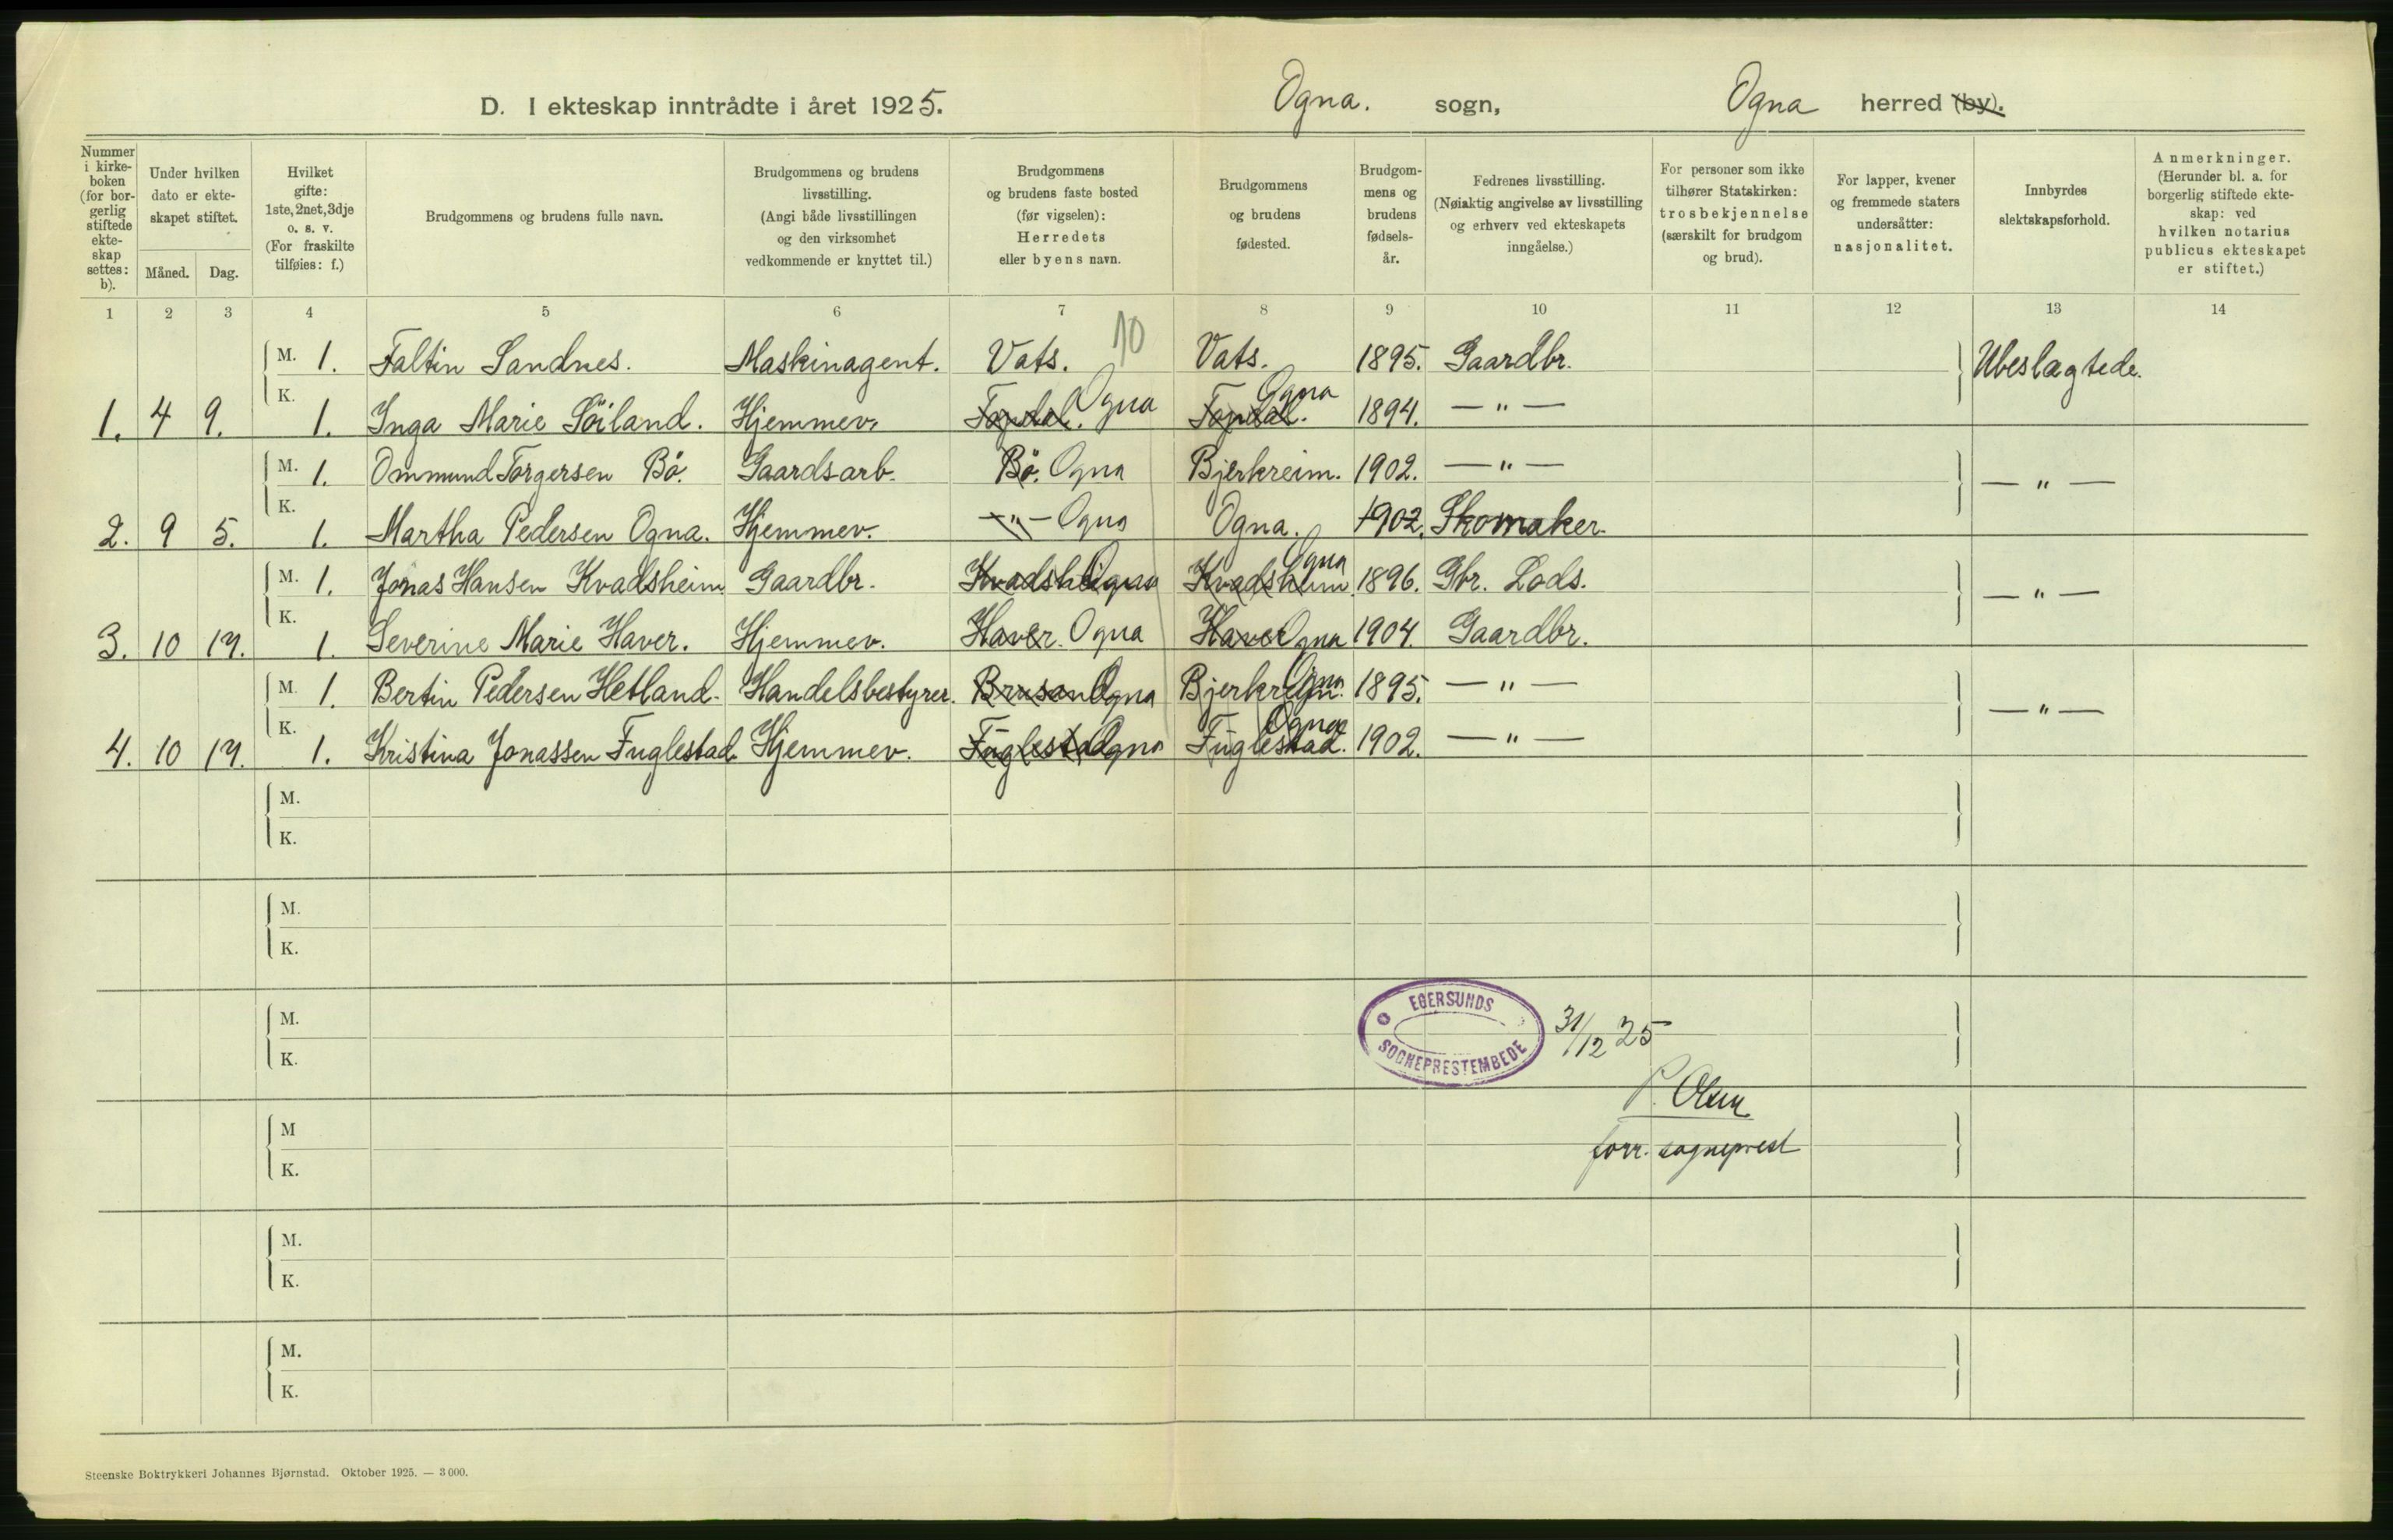 D. I ekteskap inntrådte i året 1925. Ogna. sogn, Ogna herred (by).
Nummer i kirke-boken (for bor-gerlig stiftede ekte-skap settes: b).
Under hvilken dato er ekte-skapet stiftet.
Måned. Dag.
Hvilket gifte: 1ste, 2net, 3dje o. s. v. (For fraskilte tilføies: f.)
Brudgommens og brudens fulle navn.
Brudgommens og brudens livsstilling. (Angi både livsstillingen og den virksomhet vedkommende er knyttet til.)
Brudgommens og brudens faste bosted (før vigselen): Herredets eller byens navn.
Brudgommens og brudens fødested.
Brudgom-mens og brudens fødsels-år.
Fedrenes livsstilling. (Nøiaktig angivelse av livsstilling og erhverv ved ekteskapets inngåelse.)
For personer som ikke tilhører Statskirken: trosbekjennelse (særskilt for brudgom og brud).
For lapper, kvener og fremmede staters undersåtter: nasjonalitet.
Innbyrdes slektskapsforhold.
Anmerkninger. (Herunder bl. a. for borgerlig stiftede ekte-skap: ved hvilken notarius publicus ekteskapet er stiftet.)
1 2 3 4 5 6 7 8 9 10 11 12 13 14
10
M. 1. Faltin Sandnes. Maskinagent. Vats. Vats. 1895. Gaardbr. Ubeslagtede.
K.
1. 4 9. 1. Inga Marie Söiland. Hjemmev. Ogna Ogna 1894. — " —
M. 1. Ommund Torgersen Bö. Gaardsarb. Bö. Ogna Bjerkreim. 1902. — " — — " —
K.
2. 9 5. 1. Martha Pedersen Ogna. Hjemmev. — " — Ogna Ogna. 1902. Skomaker.
M. 1. Jonas Hansen Kvadsheim Gaardbr. Kvadsh Ogna Kvadsheim Ogna 1896. Gbr. Lods. — " —
K.
3. 10 17. 1. Severine Marie Haver. Hjemmev. Haver. Ogna Haver Ogna 1904. Gaardbr.
M. 1. Bertin Pedersen Hetland. Handelsbestyrer. Brusan Ogna Bjerkreim. Ogna 1895. — " — — " —
K.
4. 10 17. 1. Kristina Jonassen Fuglestad. Hjemmev. Fuglestad Ogna Fuglestad. Ogna 1902. — " —
M.
K.
M.
K.
M.
K.
EGERSUNDS SOGNEPRESTEMBEDE
31/12 25
P. Olsen
forr. sogneprest
M
K.
M.
K.
M.
K.
Steenske Boktrykkeri Johannes Bjørnstad. Oktober 1925. — 3 000.